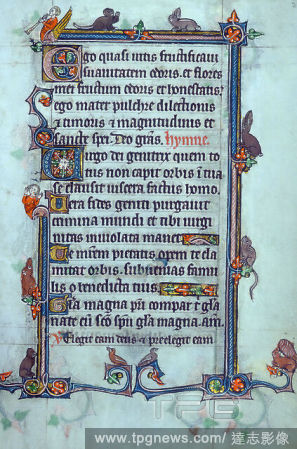 Ego quasi vitis fructificavi
suavitatem odoris. et flores
mei fructum odoris et honestatis.
ego mater pulchre dilectionis
& timoris & magnitudinis et
sancte spei. Deo gr̃as. hymne.
Virgo dei genitrix quem to
tus non capit orbis ĩ tua
se clausit viscera factus homo.
Vera fides geniti purgavit
crimina mundi et tibi virgi
nitas inviolata manet.
Te mat̃em pietatis. opem te cla
mitat orbis. subvenias famu
lis o benedicta tuis.
Gl̃a magna pr̃i compar t̃ gl̃a
nate cũ sc̃o sp̃u gl̃a magna. am̃.
V Elegit eam deus & preelegit eam
TPG
www.tpgnews.com/ 達志影像